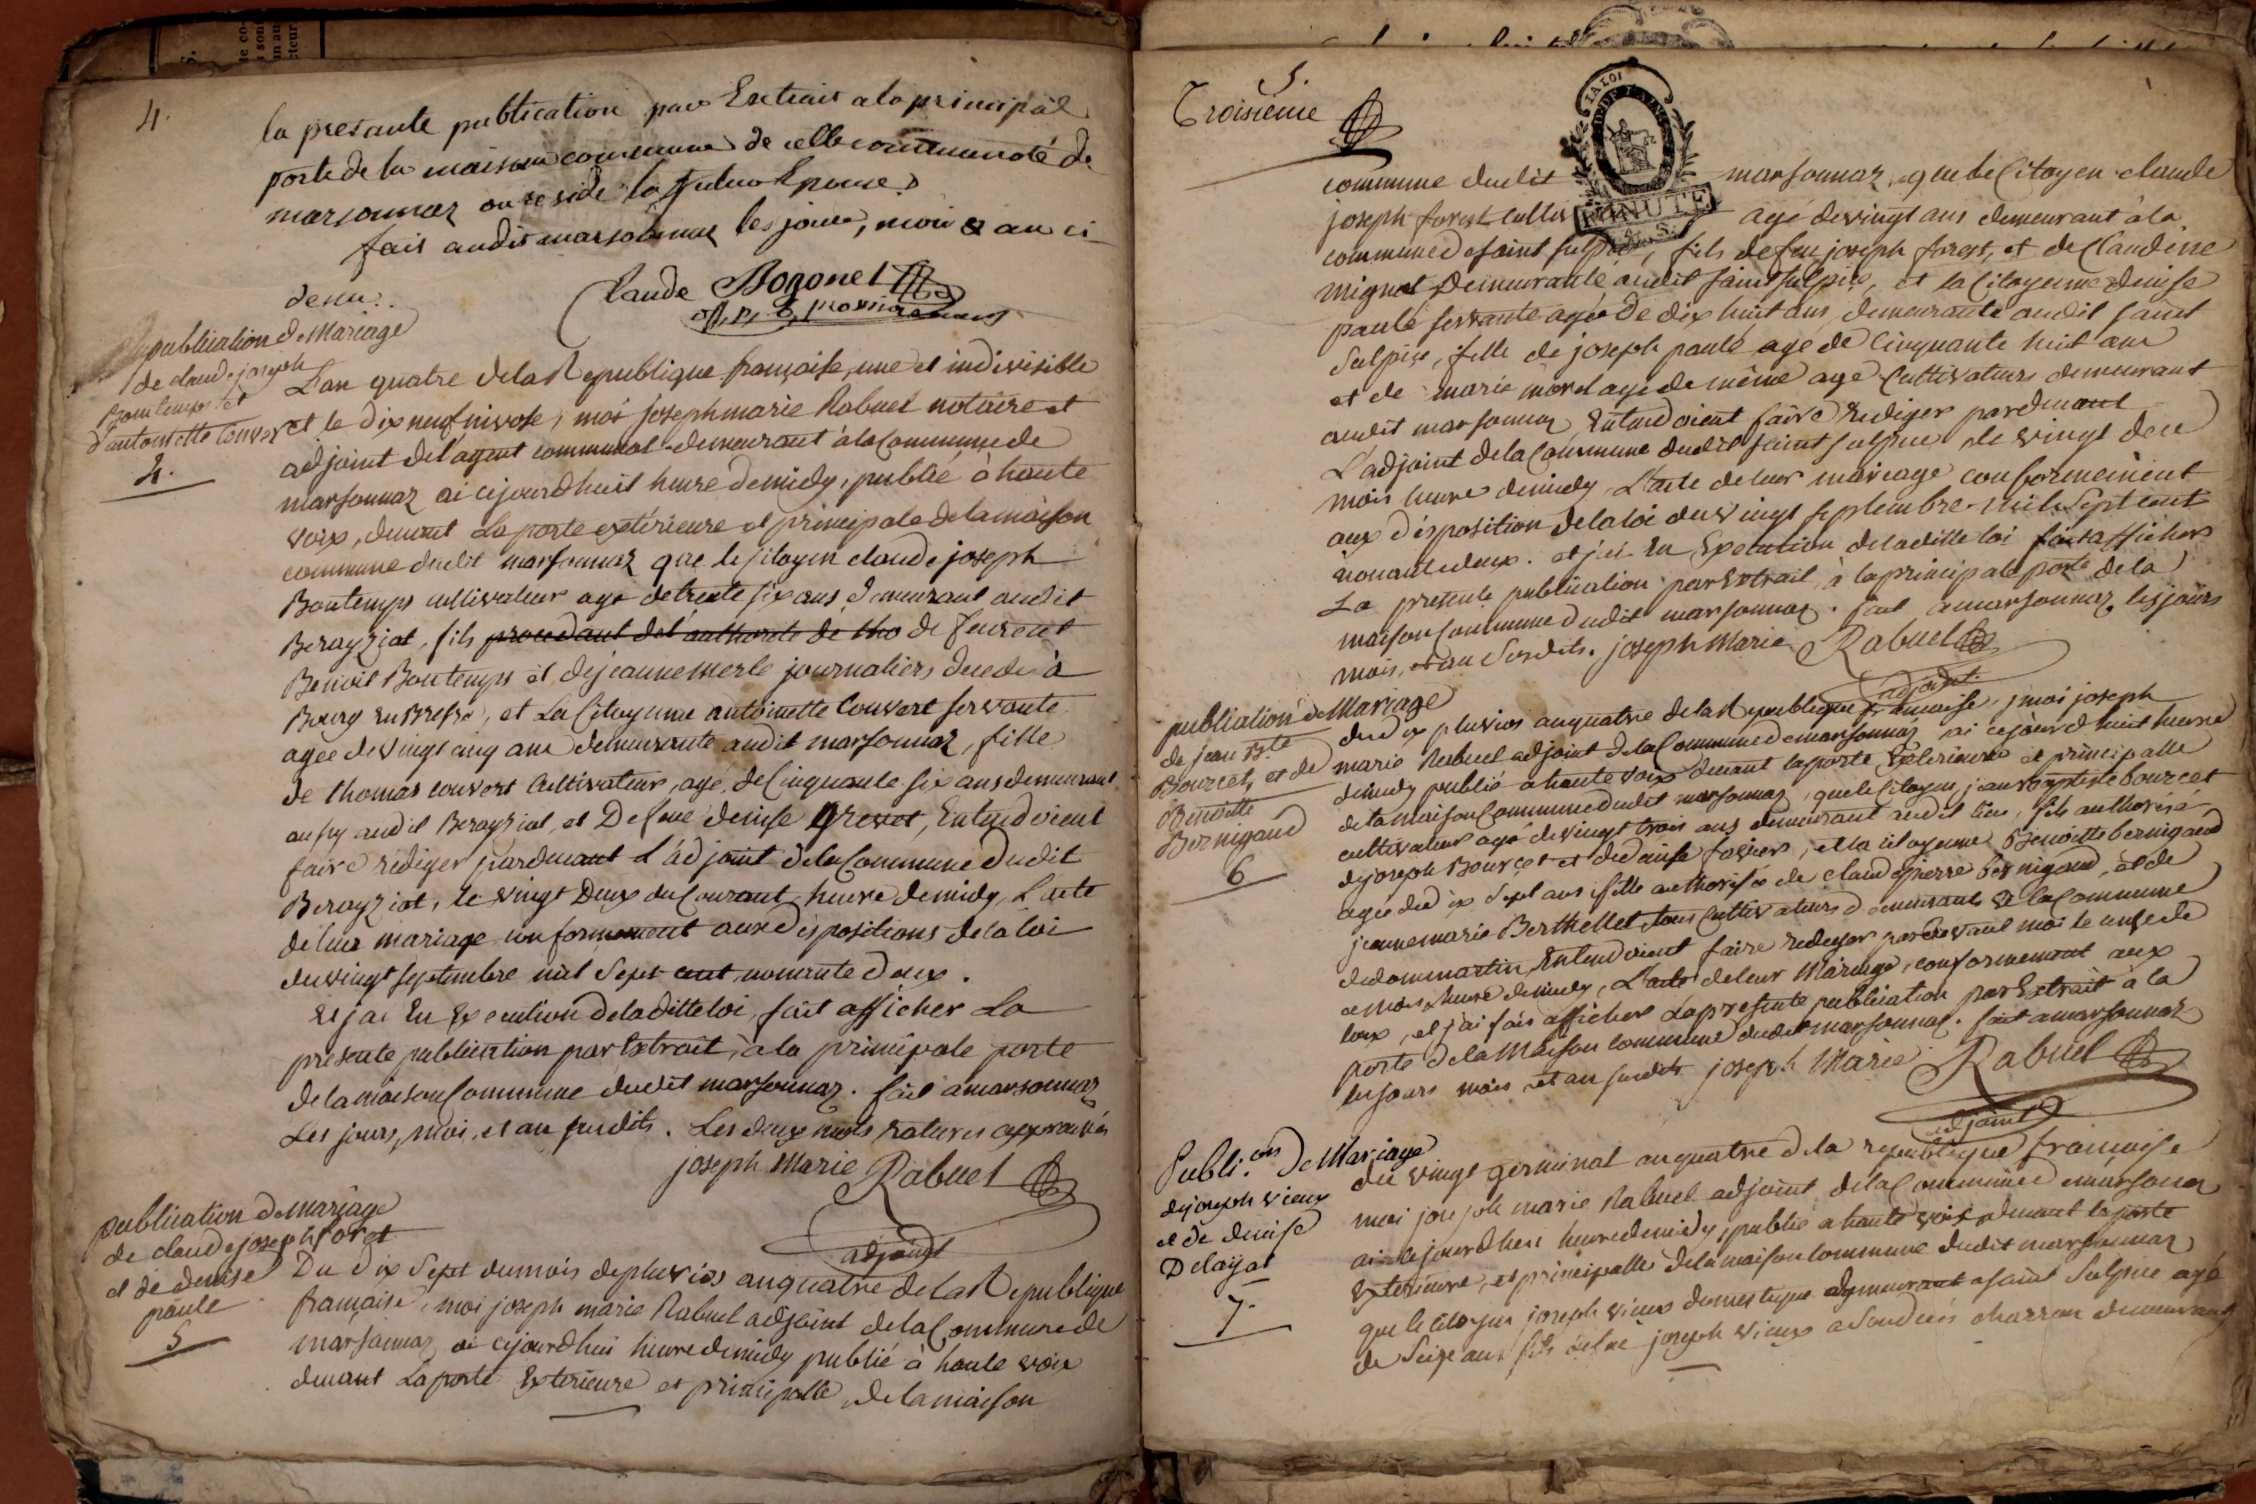 4.
la presante publication par Extrait a la principale
porte de la maison commune de celle communoté de
marsonnaz ou reside la future Epouse
fait audit marsonnaz les jour, moi & an ci
denu.
Claude Bozonet
publication de Mariage
de claude joseph
Bontemps et
d'antoinette Couvert
4.
L'an quatre de la Republique française, une et indivisible
et le dix neuf nivose, moi joseph marie Rabuel notaire et
adjoint de l'agent communal demeurant à la Commune de
marsonnaz ai cejourdhuit heure de midy, publié à haute
voix, devant La porte extérieure et principale de la maison
commune dudit marsonnaz que le citoyen claude joseph
Bontemps cultivateur agé de trente six ans demeurant audit
Berayziat, fils procedant de l'authorite de tho de feu
Benoit Bontemps et de jeanne merle journaliers decedes à
Bourg en Bresse, et La Citoyenne antoinette Couvert servante
agée de vingt cinq ans demeurante audit marsonnaz, fille
de thomas couvert Cultivateur, agé de Cinquante six ans demeurant
audit Berayziat, et De feue denise Grevet, Entendoient
faire rédiger pardevant L'adjoint de la Commune dudit
Berayziat, le vingt Deux du Courant heure de midy, L'acte
de leur mariage conformement aux dispositions de la loi
du vingt septembre mil Sept cent nonante deux.
et j'ai En Execution de la ditte loi, fait afficher La
presente publication par Extrait, à la principale porte
de la maison Commune dudit marsonnaz. fait a marsonnaz
Les jours, moi, et an susdits. Les deux mots raturés approuvés
joseph Marie Rabuel
adjoint
publication de mariage
de claude joseph foret
et de denise
paule
5
Du dix Sept du mois de pluvios an quatre de la Republique
française, moi joseph marie Rabuel adjoint de la Commune de
marsonnaz ai cejourdhui heure de midy publié à haute voix
devant La porte Exterieure et principalle de la maison
5.
Troisieme
MINUTE
commune dudit marsonnaz, que le Citoyen claude
joseph forest cultiv agé de vingt ans demeurant à la
commune de saint sulpice, fils de feu joseph forest, et de Claudine
mignot Demeurante audit saint sulpice, et la Citoyenne denise
paule servante agée de dix huit ans, demeurante audit saint
Sulpice, fille de joseph paule age de Cinquante huit ans
et de marie morel agée de même age Cultivateurs demeurant
audit marsonnaz, Entendoient faire rediger pardevant
L'adjoint de la Commune dudit saint sulpice, le vingt deu
mois heure de midy L'acte de leur mariage conformement
aux disposition de la loi du vingt septembre mil Sept cent
nonante deux. et j'ai En Execution de la ditte loi fait afficher
La presente publication par Extrait, à la principale porte de la
maison Commune dudit marsonnaz. fait a marsonnaz les jours
mois, et an Susdits. joseph Marie Rabuel
adjoint.
publication de Mariage
de jean Bte
Bourcet, et de
Benoitte
Bernigaud
6
du dix pluvios an quatre de la Republique française, moi joseph
marie Rabuel adjoint de la Commune de marsonnaz ai cejourdhuit heure
de midy publié a haute voix devant la porte Exterieure et principalle
de la maison Commune dudit marsonnaz, que le Citoyen jean baptiste bourcet
cultivateur agé de vingt trois ans demeurant audit lieu, fils authorisé
de joseph Bourcet et de denise favier, et la citoyenne Benoitte bernigaud
agée de dix Sept ans fille authorisée de claude pierre bernigaud, et de
jeanne marie Berthellet tous Cultivateurs demeurants de la Commune
de dommartin Entendoient faire rediger pardevant moi le onze de
ce mois heure de midy, L'acte de leur Mariage, conformement aux
loix, et j'ai fais afficher La presente publication par Extrait à la
porte de la Maison Commune dudit marsonnaz. fait a marsonnaz
les jours mois et an susdits joseph Marie Rabuel
adjoint
Publi.on De Mariage
de joseph vieux
et de denise
Delayat
7.
du vingt germinal an quatre de la republique française
moi joseph marie Rabuel adjoint de la Commune de marsonnaz
ai cejourdhui heure de midy, publié a haute voix devant la porte
Exterieure, et principalle de la maison Commune dudit marsonnaz
que le citoyen joseph vieux domestique demeurant a saint Sulpice agé
de Seize ans fils de feu joseph vieux charron demeurant